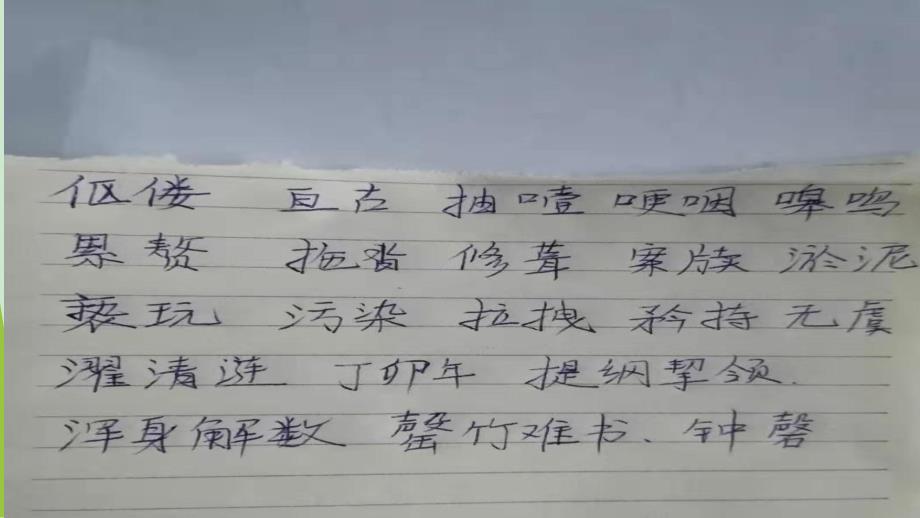 伛偻 亘古 抽噎 哽咽 嗥鸣
累赘 拖沓 修葺 案牍 淤泥
亵玩 污染 拉拽 矜持 无虞
濯清涟 丁卯年 提纲挈领.
浑身解数 罄竹难书、钟磬